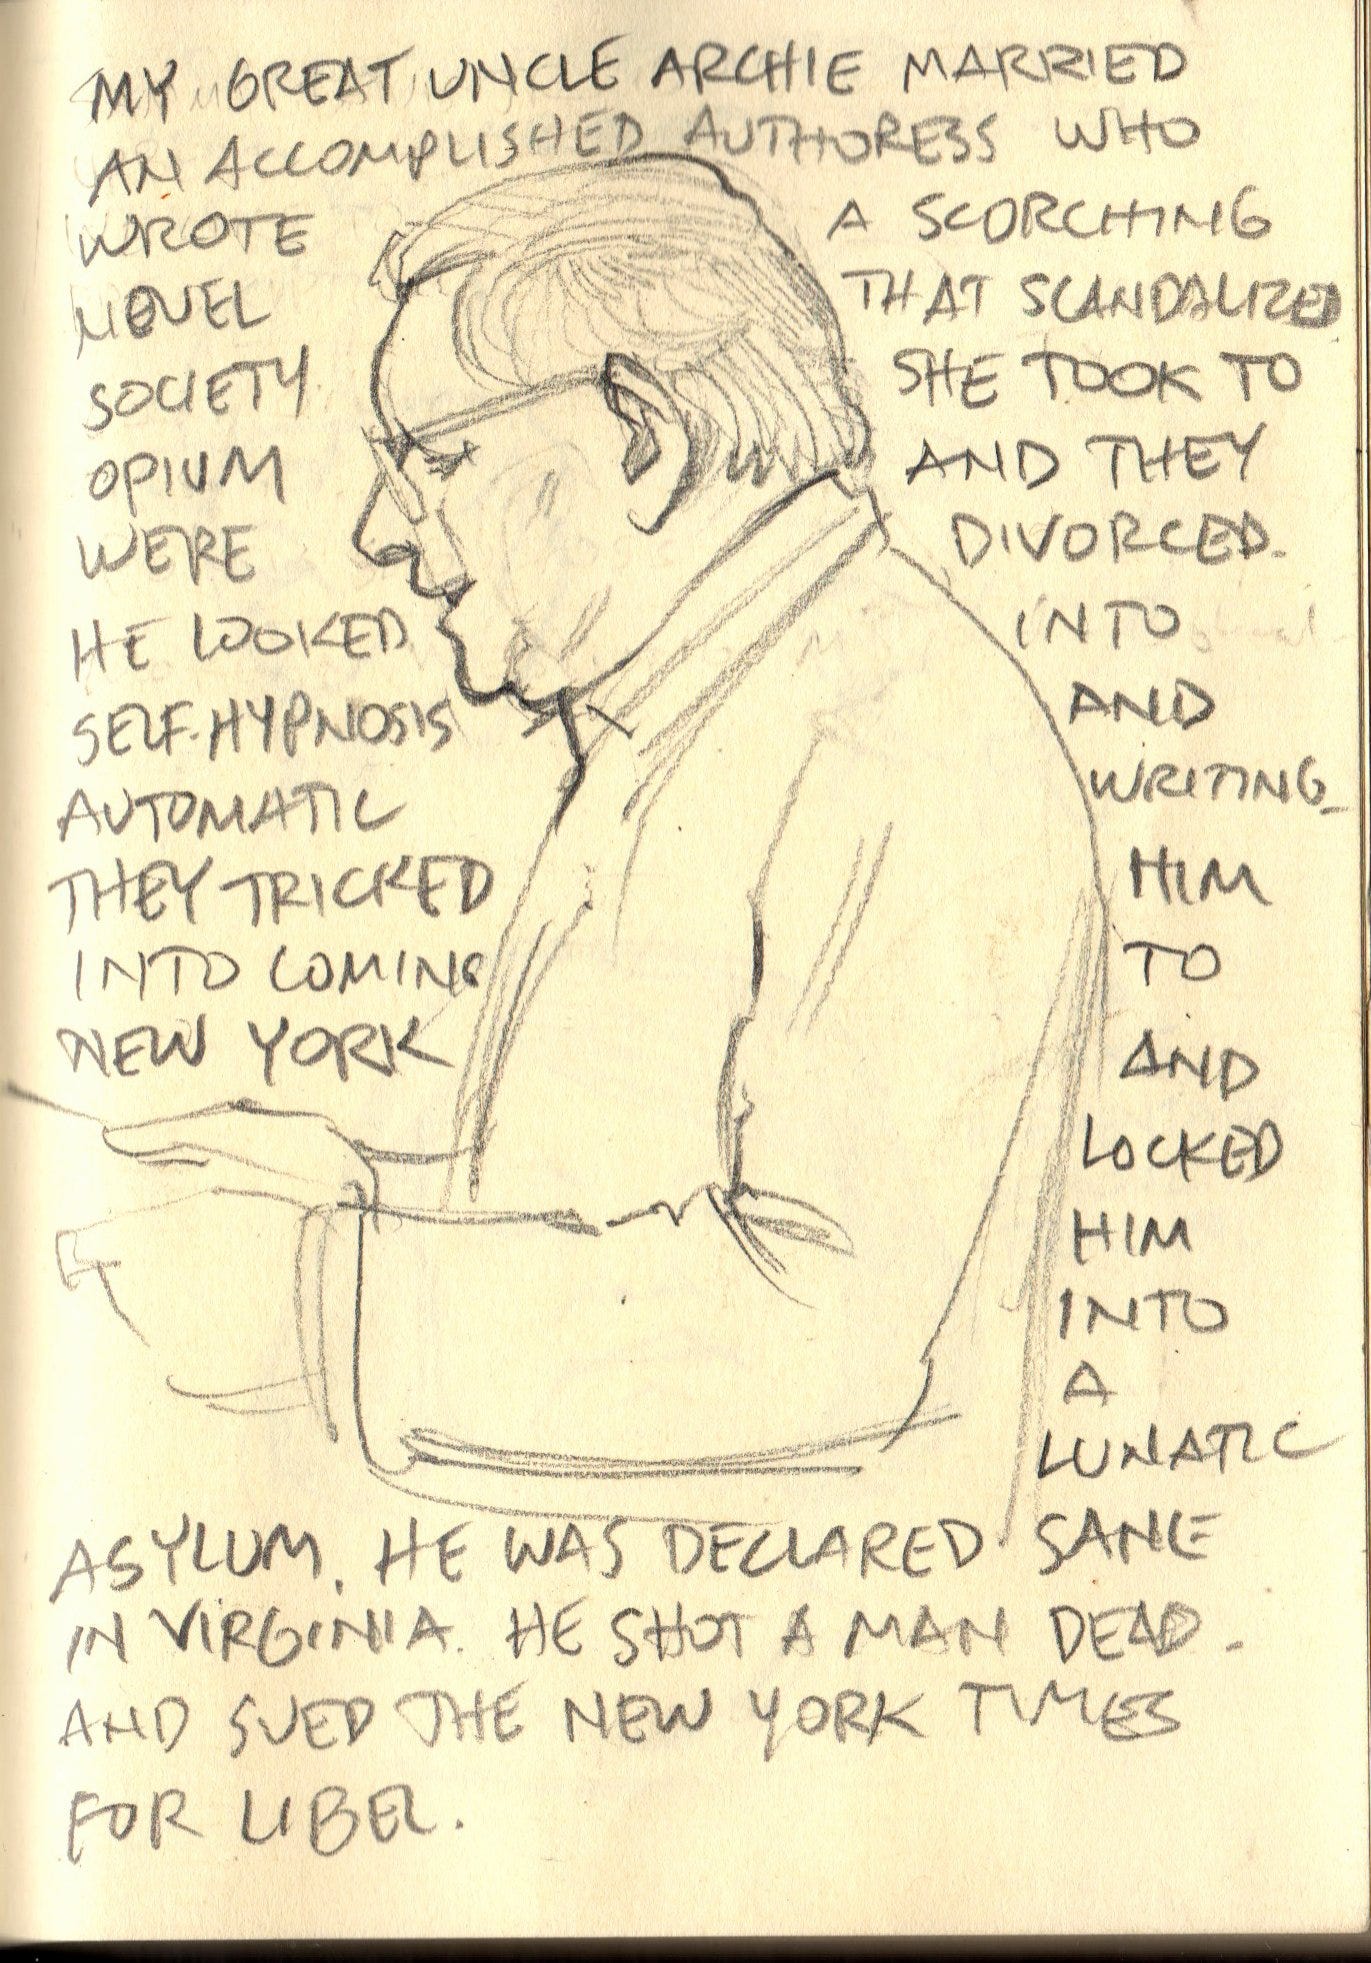 MY GREAT UNCLE ARCHIE MARRIED
AN ACCOMPLISHED AUTHORESS WHO
WROTE A SCORCHING
NOVEL THAT SCANDALIZED
SOCIETY SHE TOOK TO
OPIUM AND THEY
WERE DIVORCED.
HE LOOKED INTO
SELF-HYPNOSIS AND
AUTOMATIC WRITING.
THEY TRICKED HIM
INTO COMING TO
NEW YORK AND
LOCKED
HIM
INTO
A
LUNATIC
ASYLUM. HE WAS DECLARED SANE
IN VIRGINIA. HE SHOT A MAN DEAD.
AND SUED THE NEW YORK TIMES
FOR LIBEL.